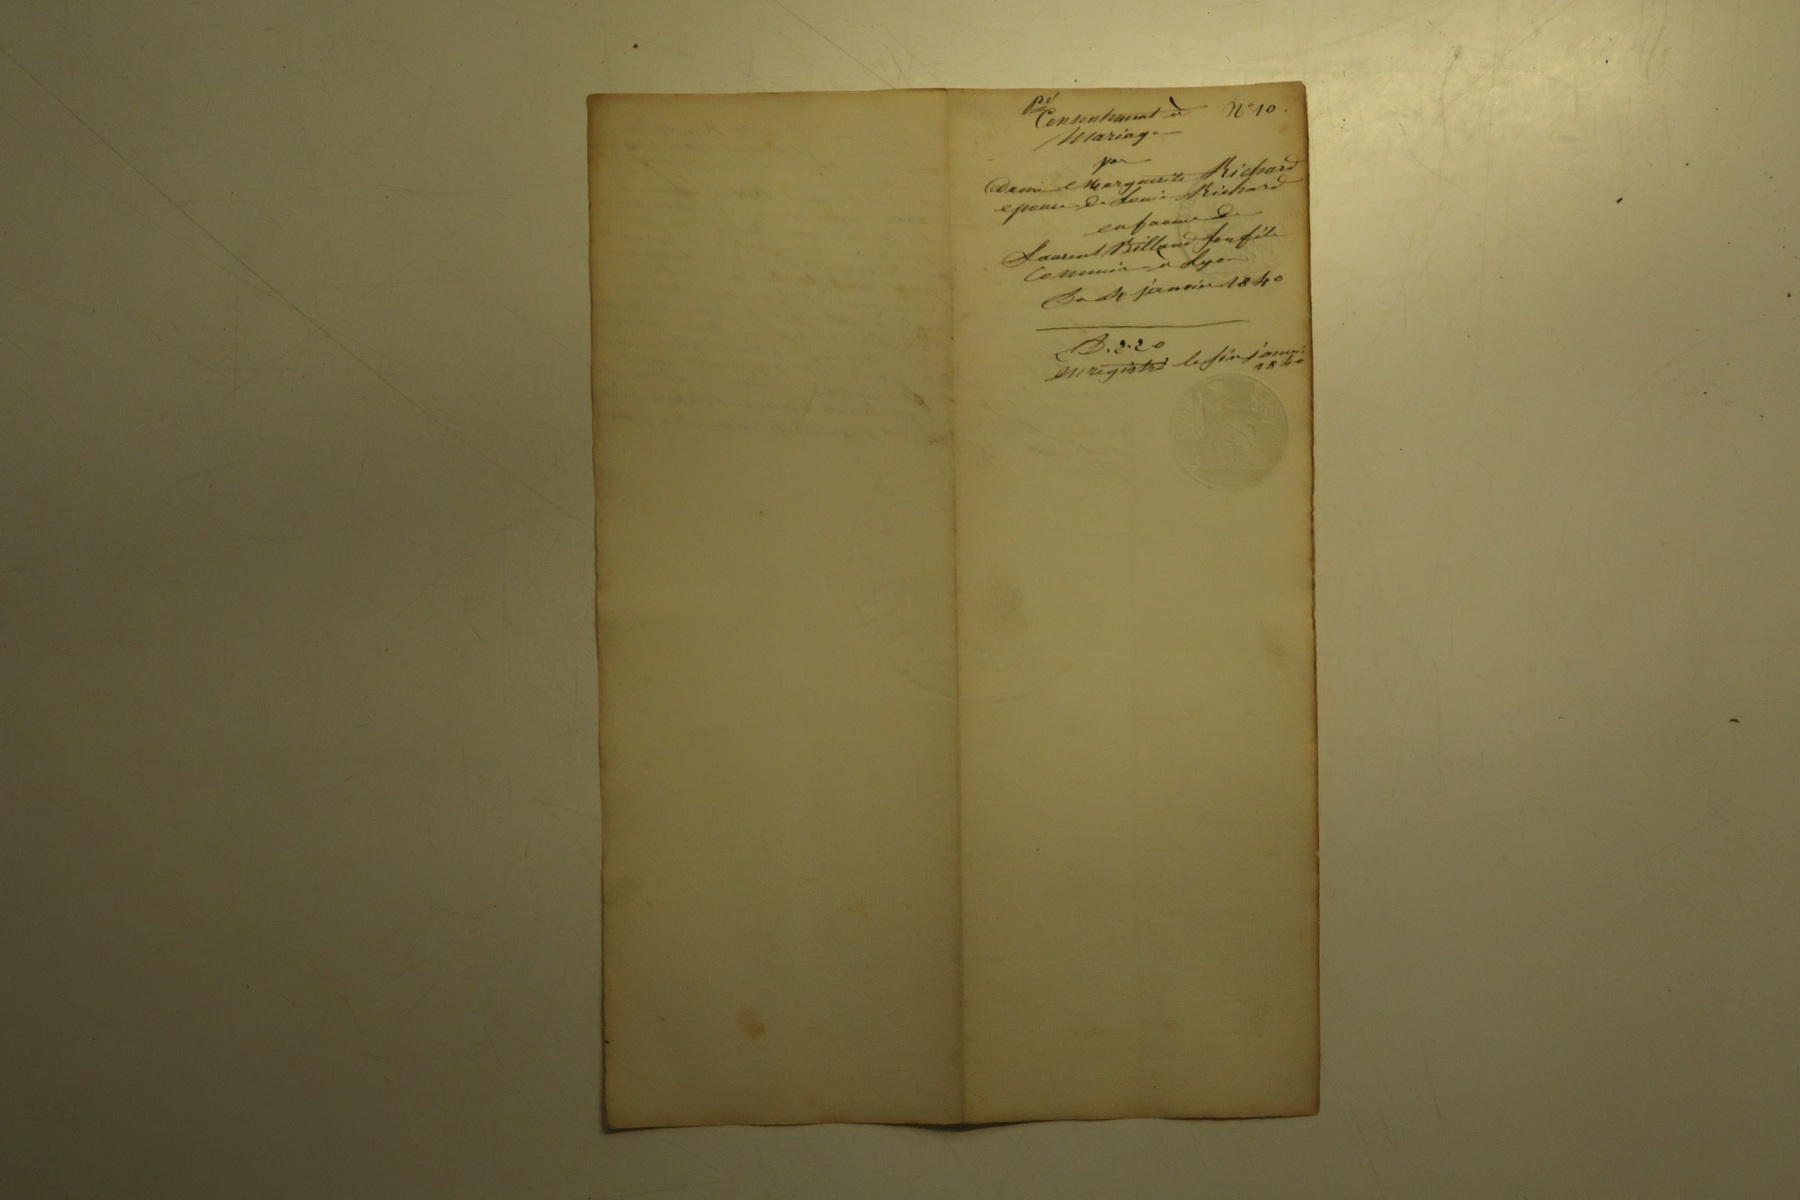 Consentement à N° 10.
Mariage
par
dame Marguerite Richard
epouse de Louis Richard
en faveur de
Laurent Billaud son fils
Commis à Lyon
Du 4 janvier 1840
D. 2.20
enregistré le six janvier
1840